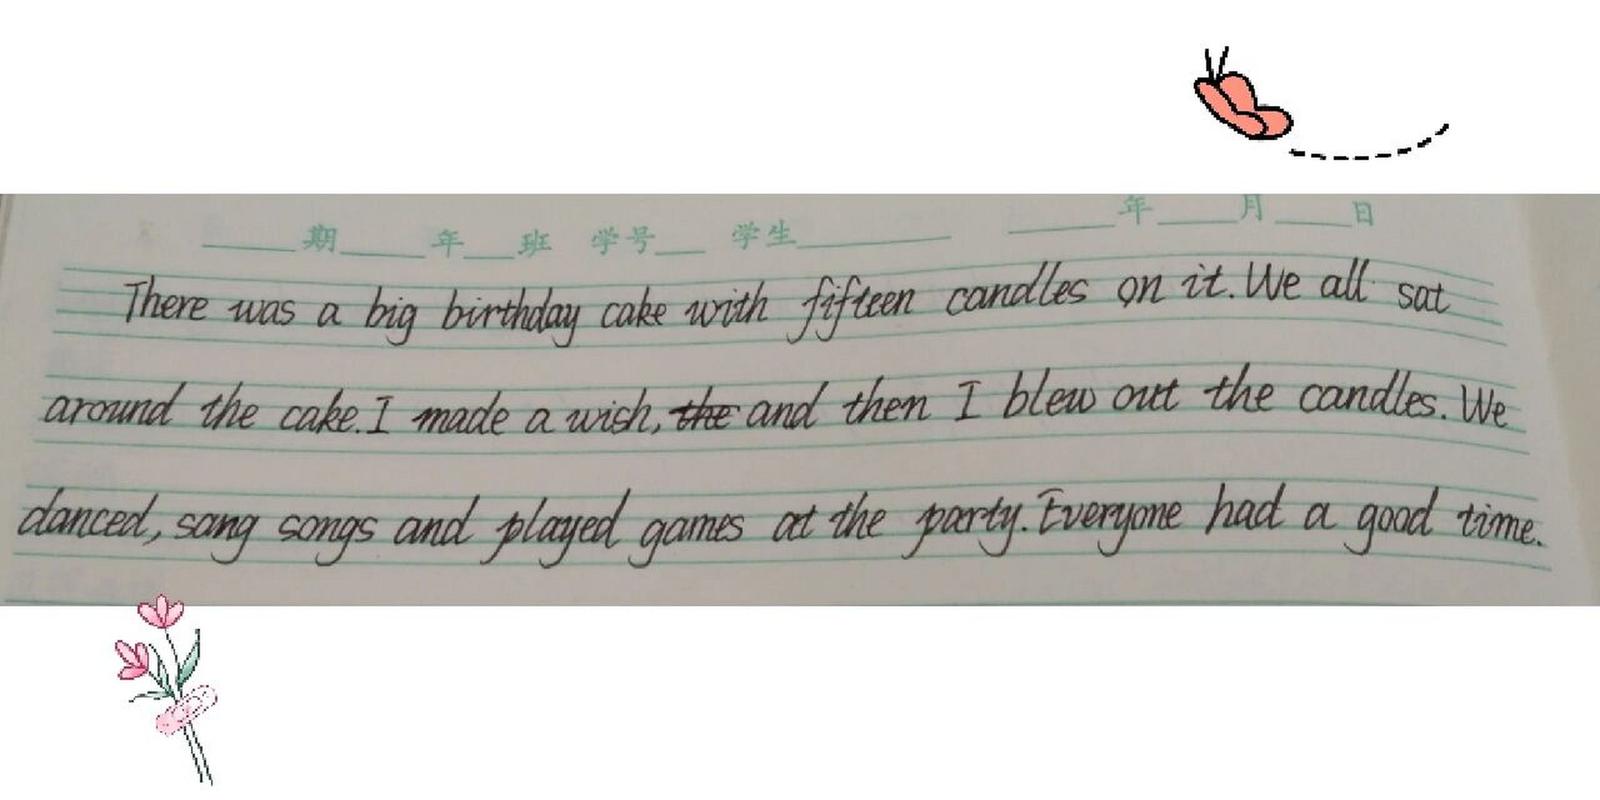 ____期____年___班 学号__ 学生______ _____年____月____日
There was a big birthday cake with fifteen candles on it. We all sat
around the cake. I made a wish, the and then I blew out the candles. We
danced, sang songs and played games at the party. Everyone had a good time.